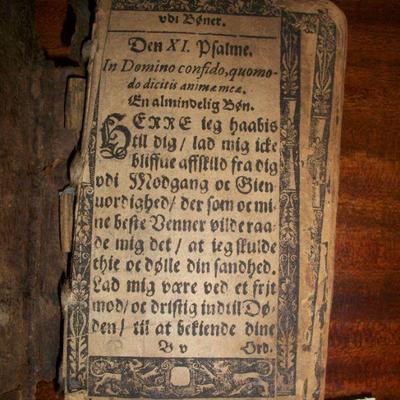 vdi Bøner.
Den XI. Psalme.
In Domino confido, quomo-
do dicitis animæ meæ.
En almindelig Bøn.
HERRE ieg haabis
til dig / lad mig icke
bliffue affskild fra dig
vdi Modgang oc Gien-
uordighed / der som oc mi-
ne beste Venner vilde raa-
de mig det / at ieg skulde
thie oc dølle din sandhed.
Lad mig være ved et frit
mod / oc dristig indtil Dø-
den / til at bekiende dine
B v Ord.